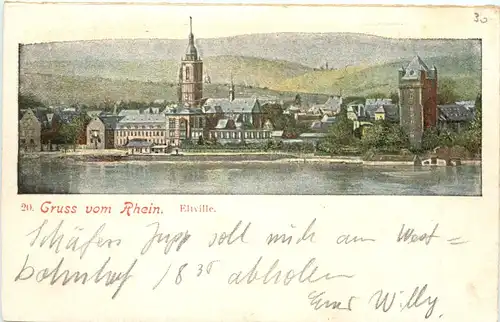 30
20. Gruss vom Rhein. Eltville.
Schäfers Jupp soll mich am West=
bahnhof 18 35 abholen
Euer Willy.